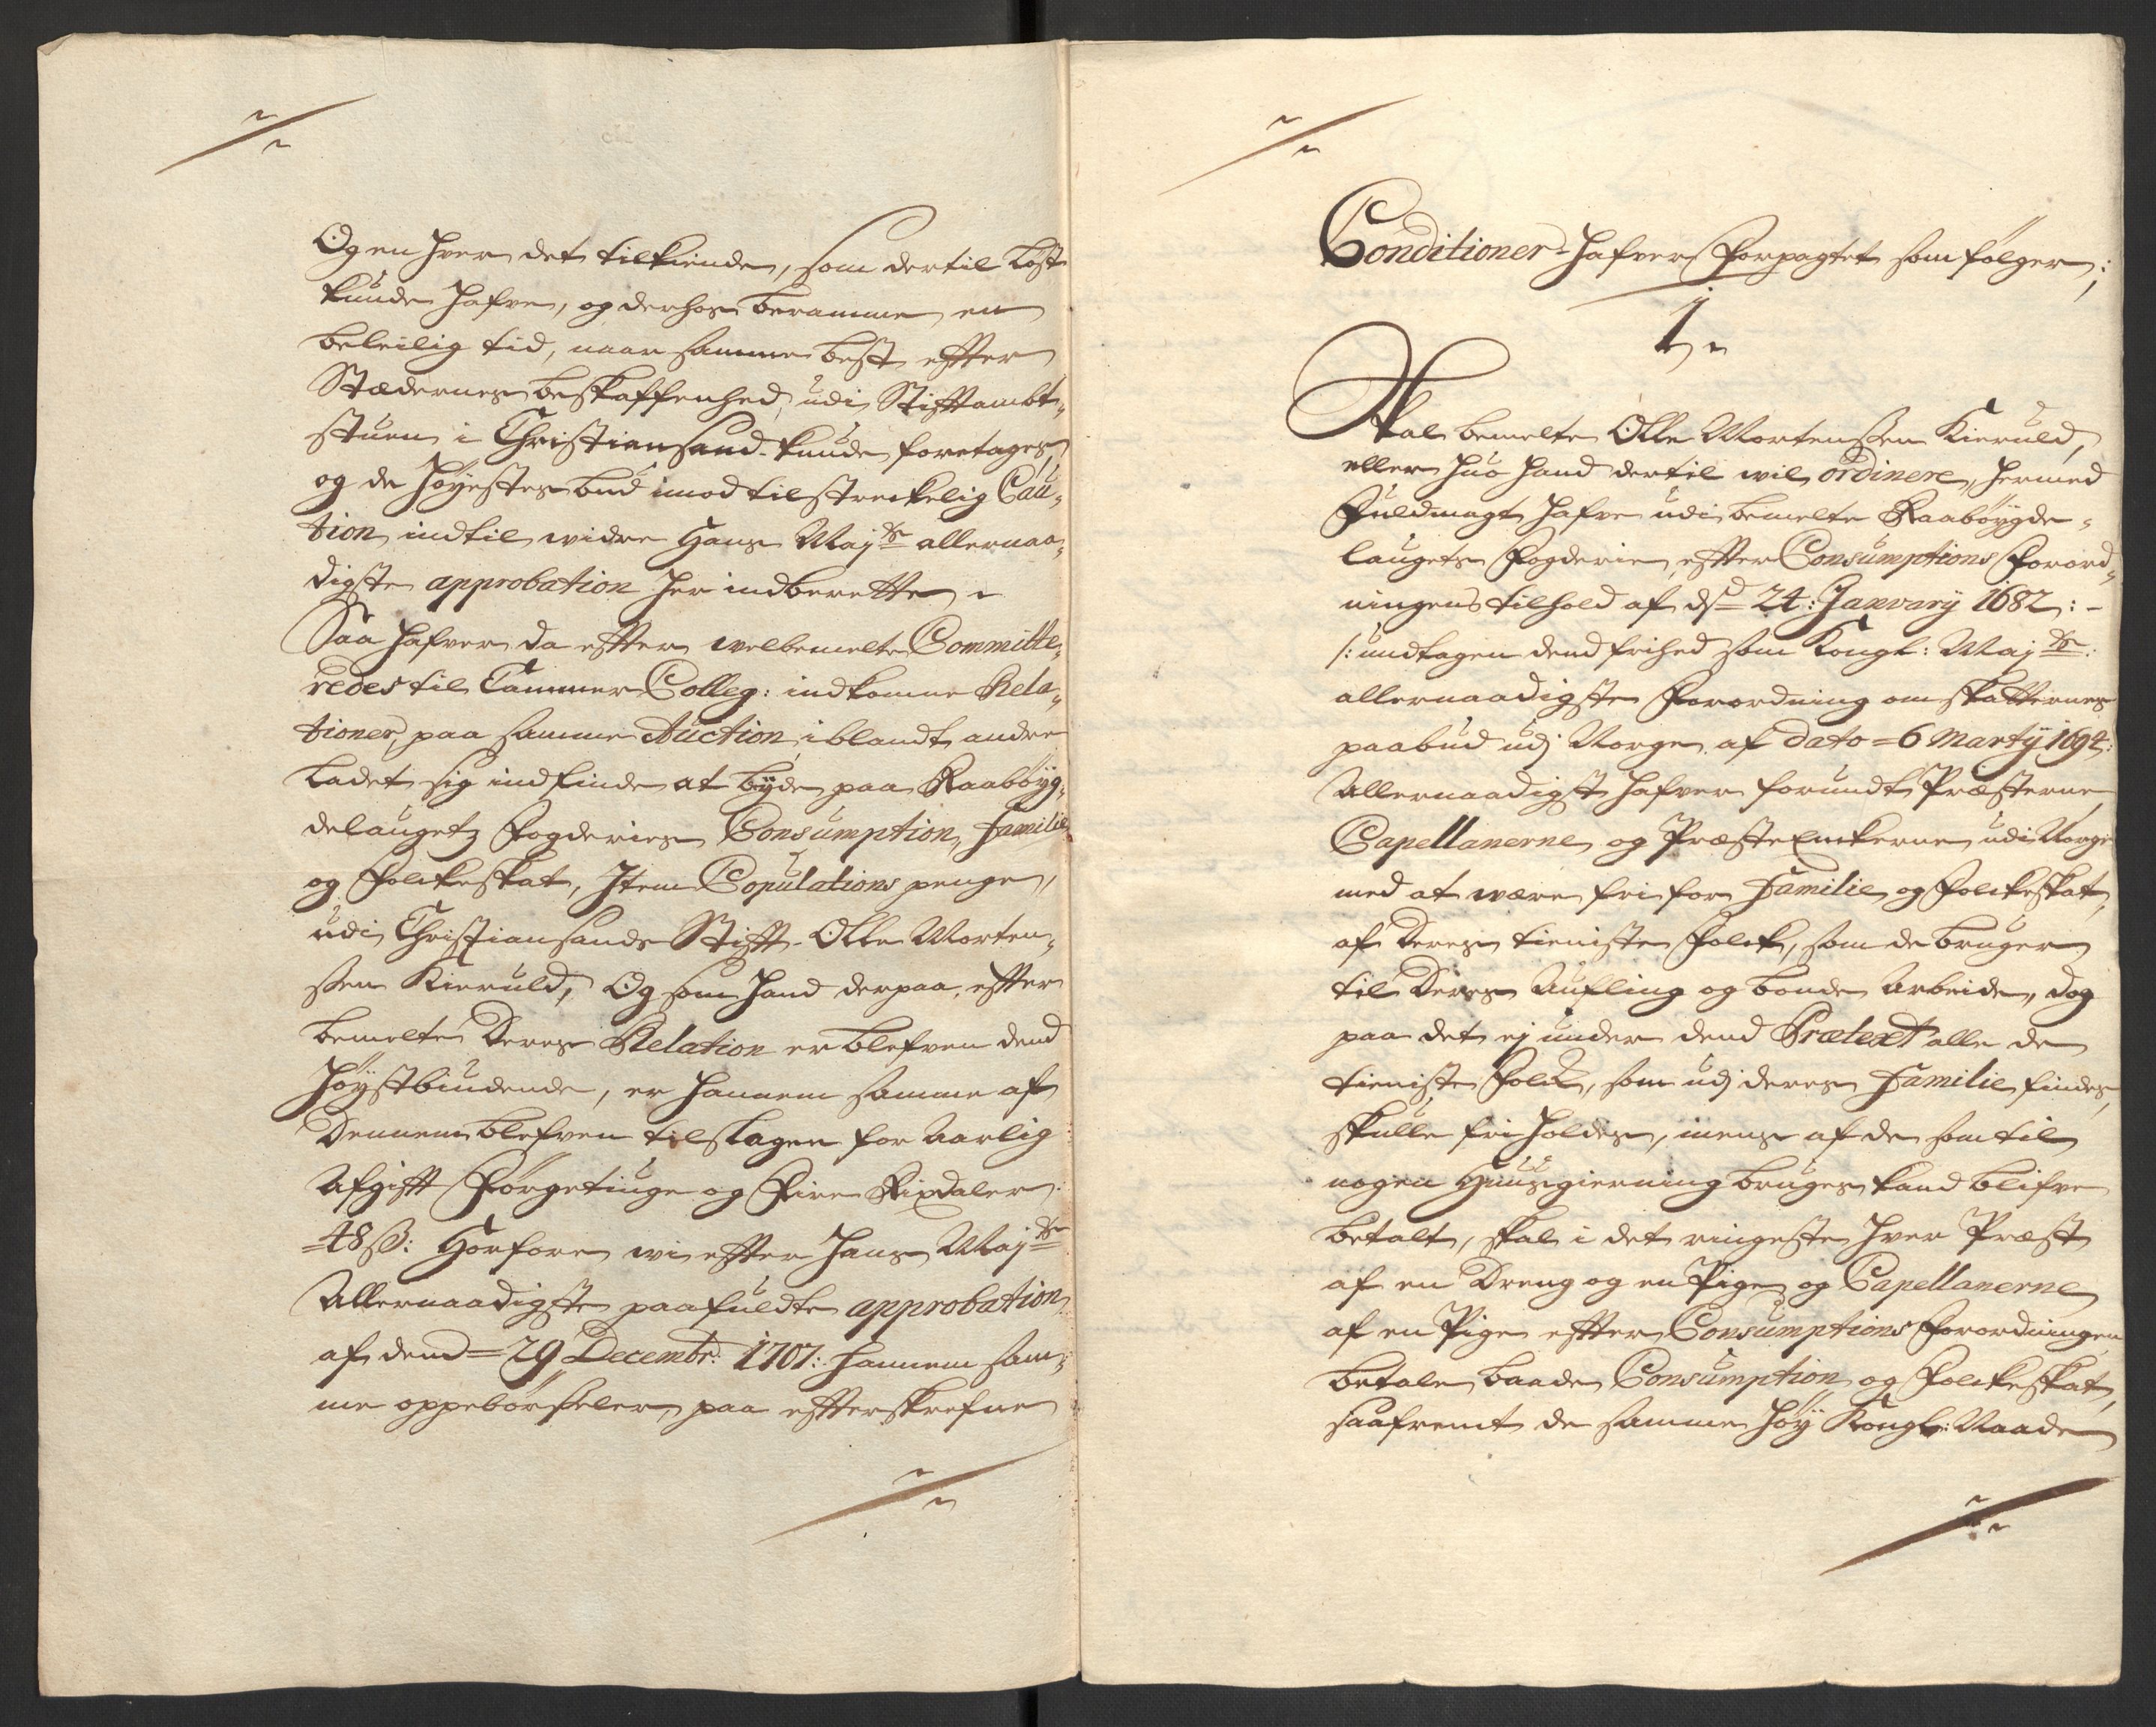 Og en hver det tilkiende, som dertil Lyst
kunde hafve, og derhos beramme en
beleilig tid, naar samme best effter
Stædernes beskaffenhed, udi Stiftambt„
stuen i Christiansand kunde foretages,
og de høyestes bud imod tilstreckelig Cau„
tion indtil widre Hans Maj:ts allernaa„
digste approbation her indberette ~
Saa hafver da effter velbemelte Committe„
redes til Cammer Colleg: indkomne Rela„
tioner, paa samme Auction iblandt andre
ladet sig indfinde at byde paa Raabøyg„
delaugetz Fogderies Consumption, Familie
og Folckeskat, Item Copulations penge,
udi Christiansands Stifft Olle Morten„
ssen Kieruld, Og som hand derpaa, effter
bemelte Deres Relation er blefven dend
Høystbiudende, er hannem samme af
Dennem blefven tilslagen for Aarlig
Afgifft Førgetiuge og Fire Rixdaler
=48 ß: Hvorfore wi effter Hans Maj:ts
Allernaadigste paafuldte approbation
af dend=29 Decembr: 1707: hannem sam„
me oppebørseler paa effterskrefne
Conditioner hafver Forpagtet som følger;
1 ~
Skal bemelte Olle Mortenssen Kieruld,
eller huo hand dertil wil ordinere, hermed
Fuldmagt hafve udi bemelte Raabøygde„
laugets Fogderie, effter Consumptions Forord„
ningens tilhold af dend 24: January 1682:-
/: undtagen dend frihed som Kongl: Maj:ts:
allernaadigste Forordning om skatternes
paabud udj Norge af dato=6 Marty 1692:
Allernaadigst hafver forundt Præsterne,
Capellanerne, og Præste Enckerne udi Norge
med at være fri for Familie og Folckeskat,
af Deres tieniste Folck, som de bruger
til Deres Aufling og bonde Arbeide, dog
paa det ej under dend Prætext alle de
tieniste Folck, som udj deres Familie findes,
skulle fri holdes, mens af de som til
nogen Huusgierning bruges kand blifve
betalt, skal i det ringeste hver Præst
af en Dreng og en Pige, og Capellanerne
af en Pige effter Consumptions Forordningen
betale baade Consumption og Folckeskat,
saafremt de samme høy Kongl: Naade